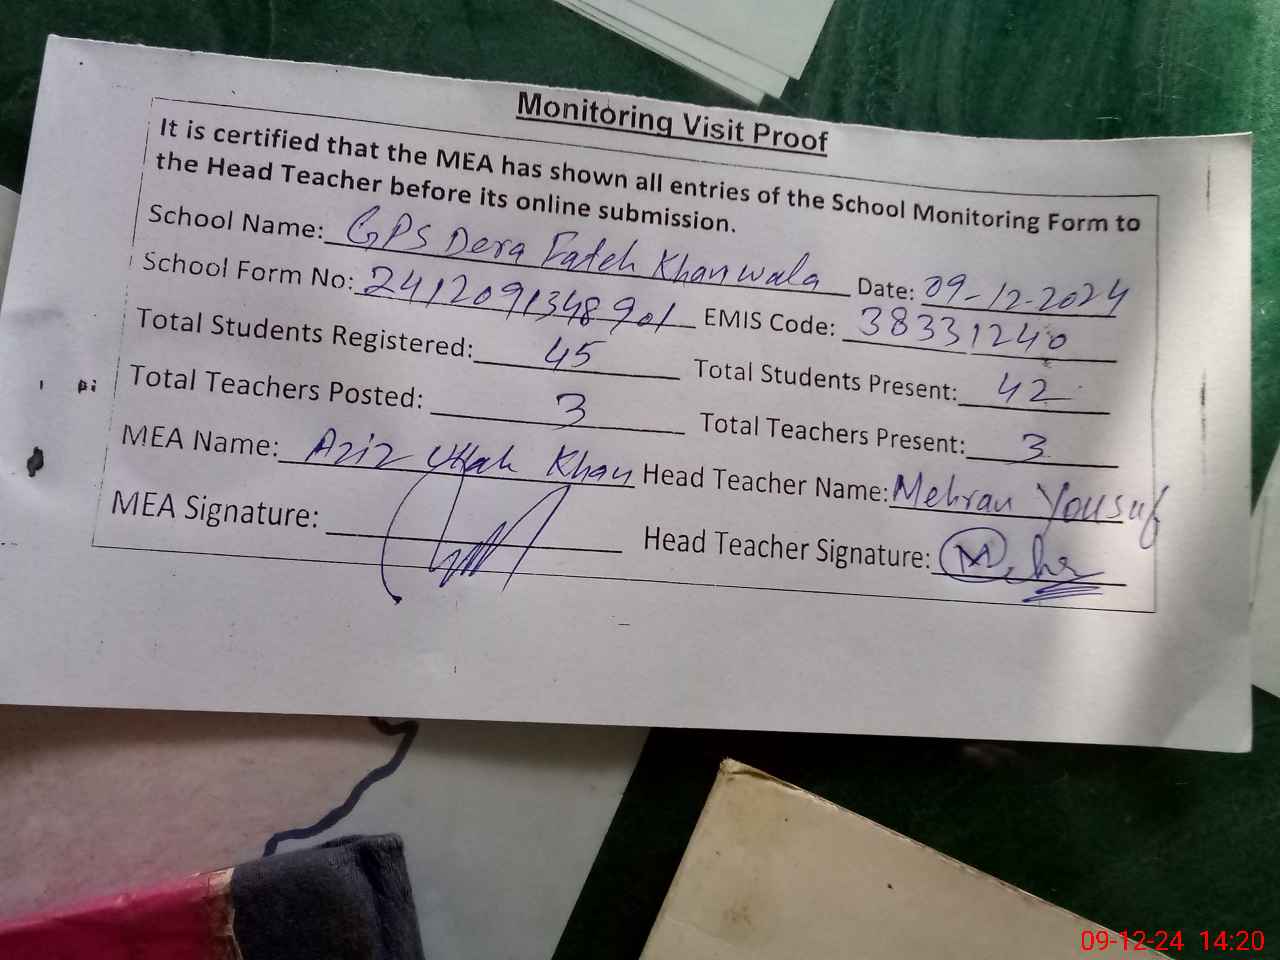 Monitoring Visit Proof
It is certified that the MEA has shown all entries of the School Monitoring Form to
the Head Teacher before its online submission.
School Name: GPS Dera Fateh Khan wala Date: 09-12-2024
School Form No: 2412091348901 EMIS Code: 38331240
Total Students Registered: 45 Total Students Present: 42
Total Teachers Posted: 3 Total Teachers Present: 3
MEA Name: Aziz Ullah Khan Head Teacher Name: Mehran Yousuf
MEA Signature: Head Teacher Signature:
09-12-24 14:20